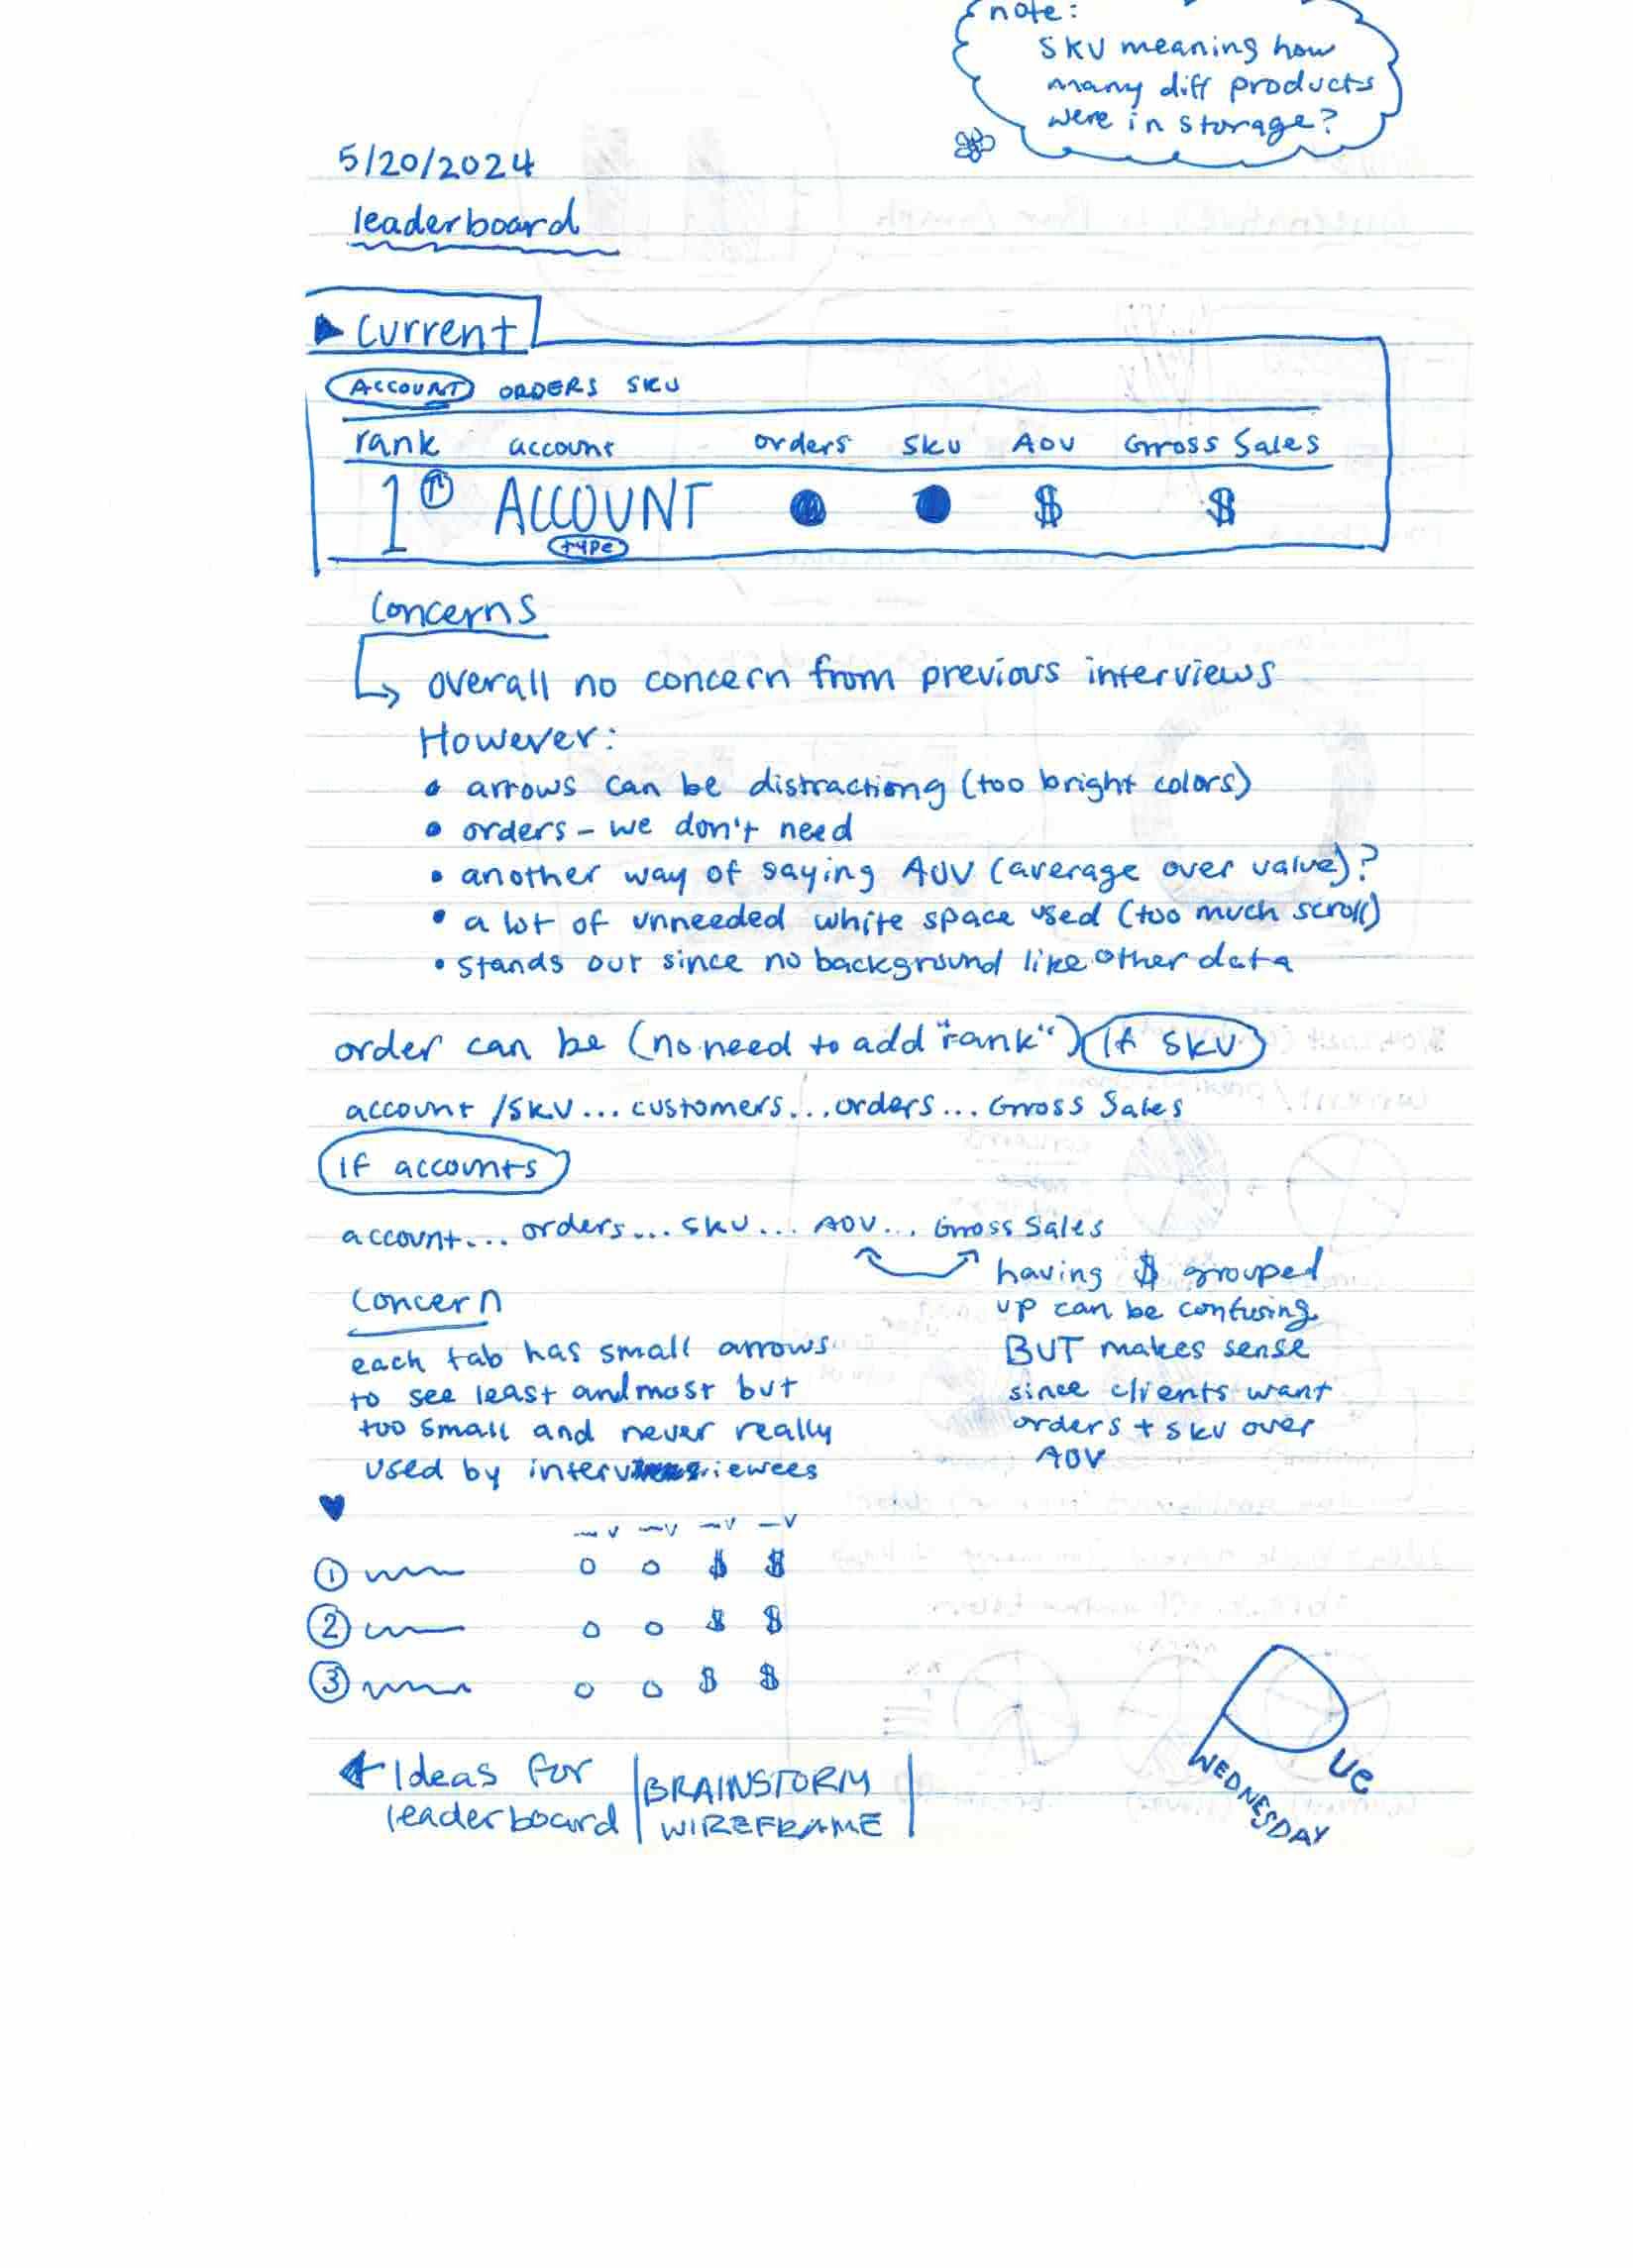 note:
SKU meaning how
many diff products
were in storage?
5/20/2024
leaderboard
Current
ACCOUNT ORDERS SKU
rank account orders SKU AOV Gross Sales
1 ACCOUNT $ $
type
Concerns
overall no concern from previous interviews
However:
• arrows can be distractiong (too bright colors)
• orders - we don't need
• another way of saying AOV (average over value)?
• a lot of unneeded white space used (too much scroll)
• stands out since no background like other data
order can be (no need to add "rank") if SKU
account /SKU... customers... orders... Gross Sales
if accounts
account... orders... SKU... AOV... Gross Sales
having $ grouped
up can be confusing
BUT makes sense
since clients want
orders + SKU over
AOV
Concern
each tab has small arrows
to see least and most but
too small and never really
used by interviewees
1 $ $
2 $ $
3 $ $
Ideas for
leaderboard
BRAINSTORM
WIREFRAME
DUE
WEDNESDAY